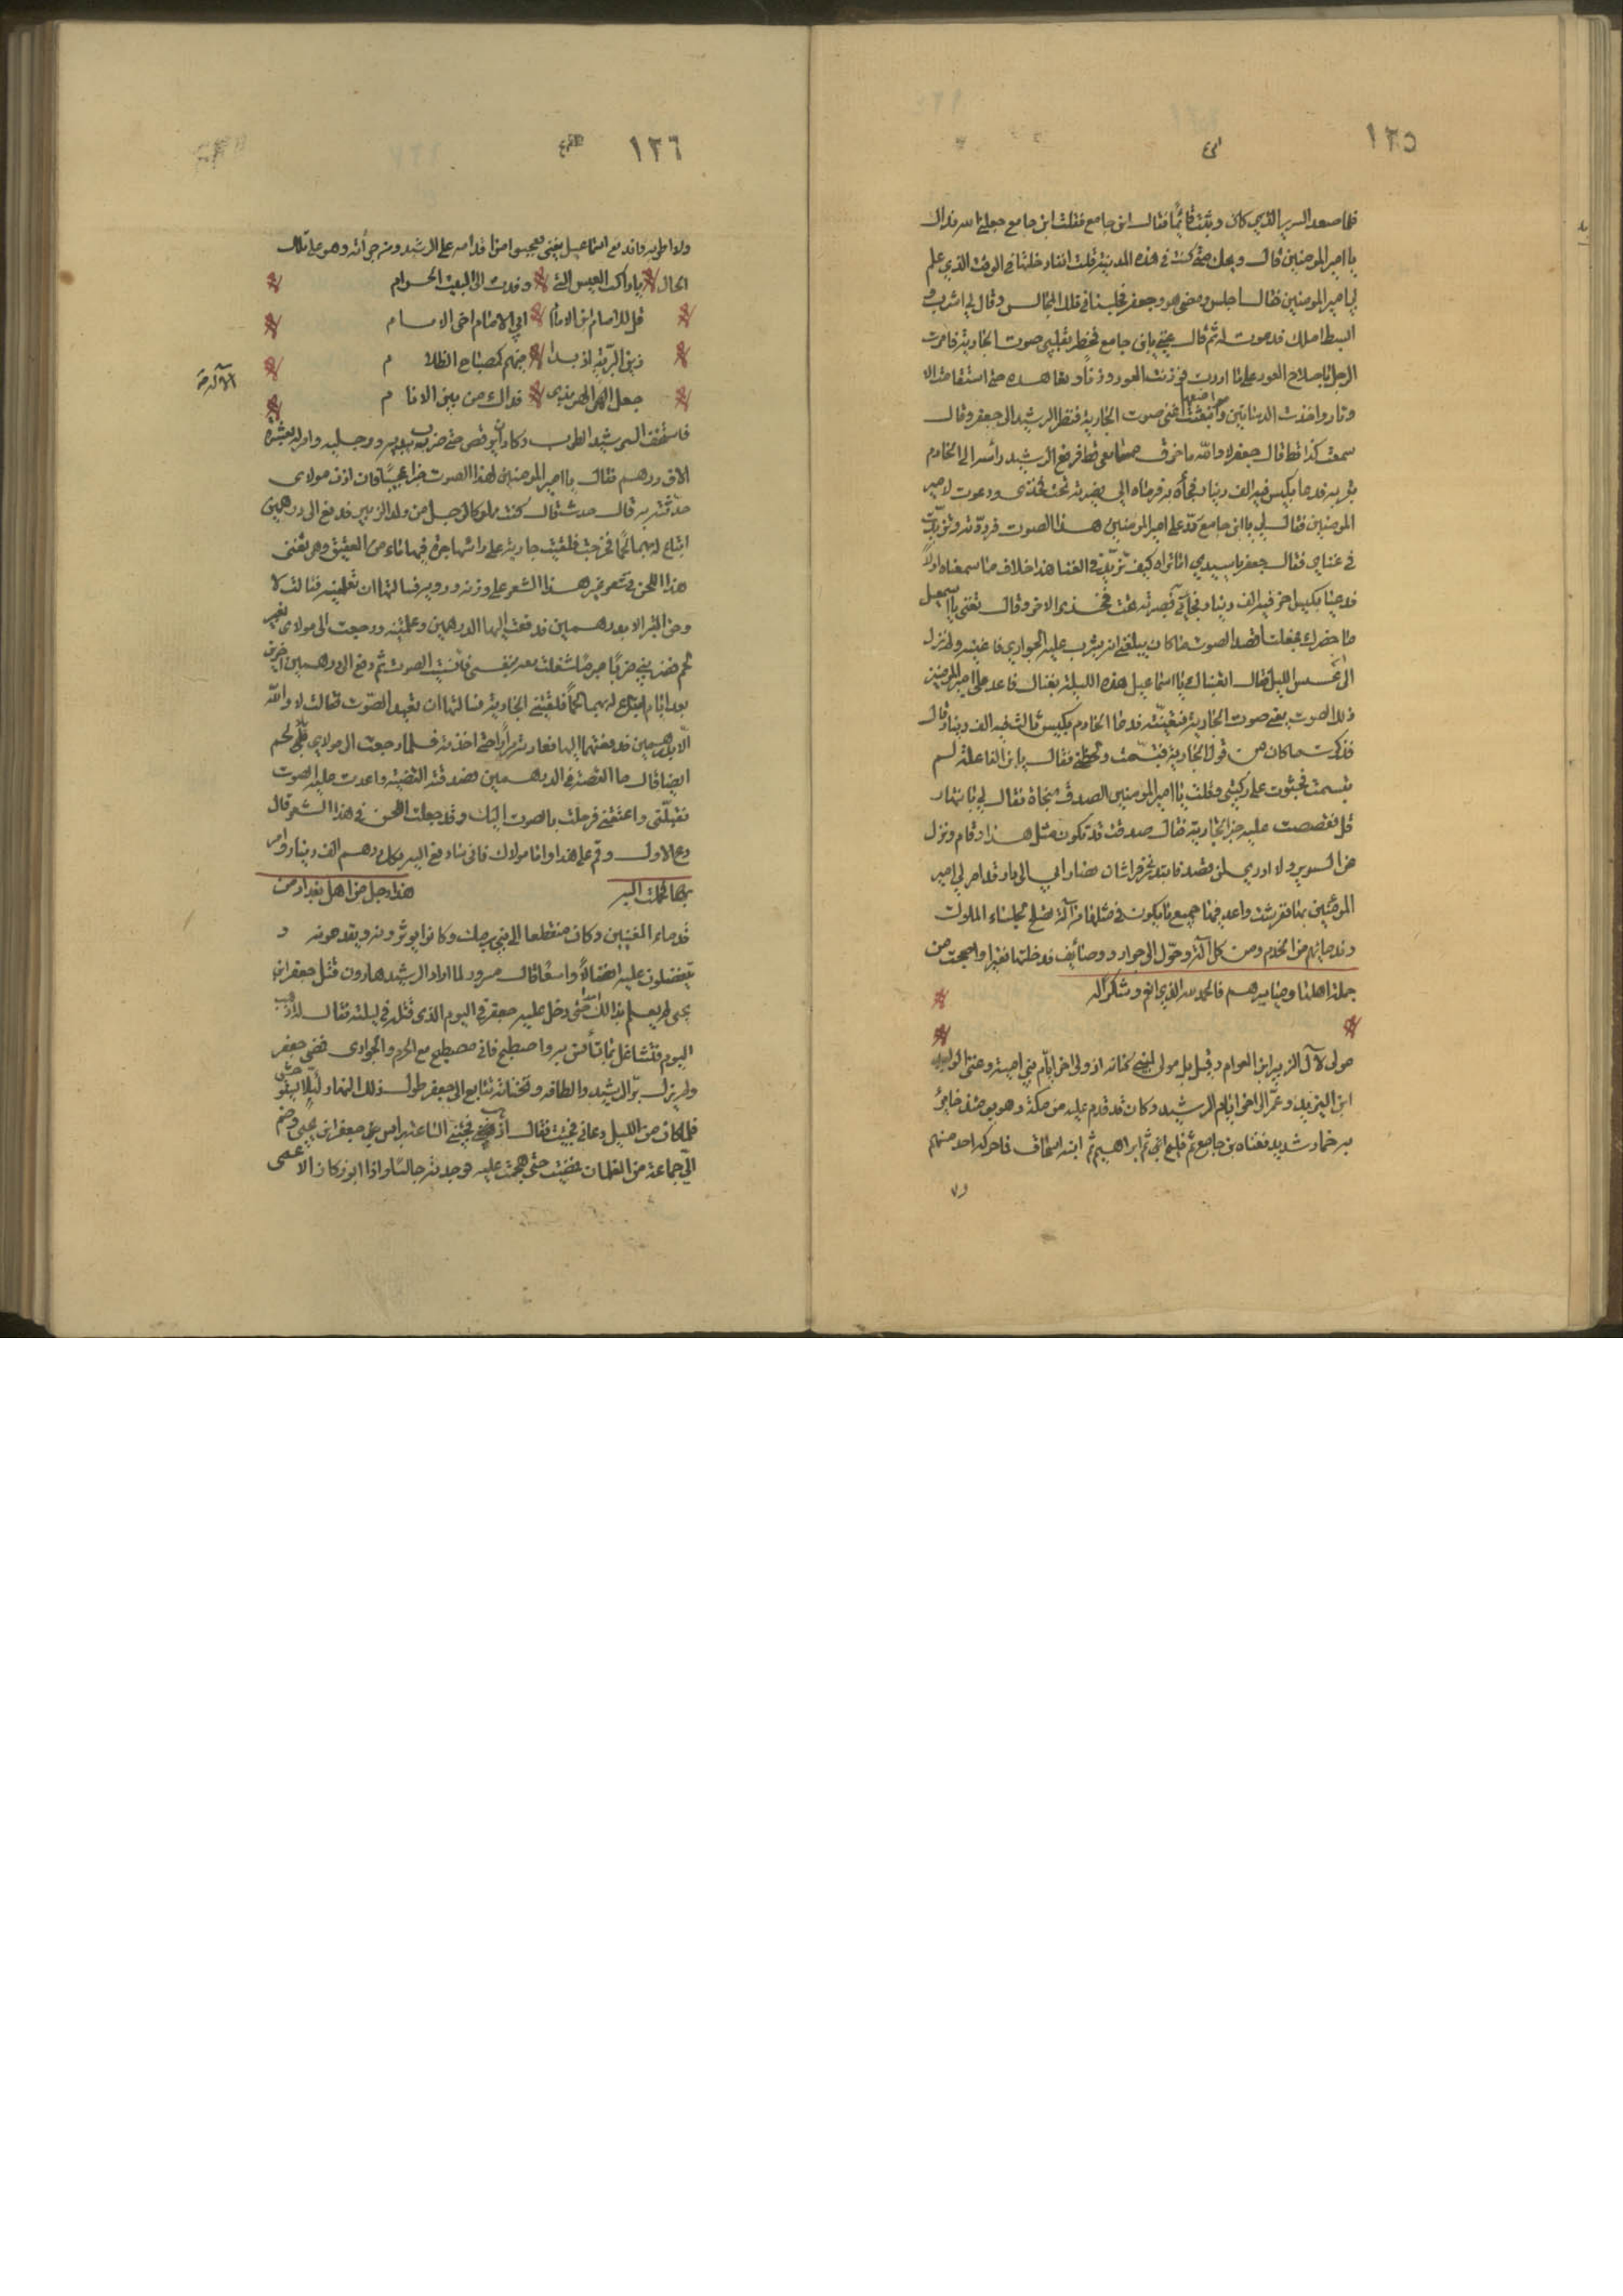 ١٢٥
فلما صعد السرير الذي كان وثبت قائما فقال ابن جامع فقلت ابن جامع جعلني الله فداك
يا امير المومنين قال ويحك متى كنت في هذه المدينة قلت انفا دخلتها في الوقت الذي علم
بي امير المومنين فقال اجلس ومضى هو وجعفر فجلسا في تلك المجالس وقال لي اشرب و
ابسط املك فدعوت له ثم قال غنني يا ابن جامع فخطر بقلبي صوت الجارية فامرت
الرجل باصلاح العود على ما اردت فوزنت العود وزنا وتعاهده حتى استقامت الا
وتار واخذت الدساتين مواضعها وانبعثت اغني صوت الجارية فنظر الرشيد الى جعفر وقال
سمعت كذا قط قال جعفر لا والله ما خرق مسامعي قط فرفع الرشيد رأسه الى الخادم
بقربه فدعا بكيس فيه الف دينار فجاء به فرماه الي فصيرته تحت فخذي ودعوت لامير
المومنين فقال لي يا ابن جامع رد على امير المومنين هذا الصوت فرددته وتزيدت
في غنايي فقال جعفر يا سيدي اما تراه كيف تزيد في الغنا هذا خلاف ما سمعناه اولا
فدعي بكيس اخر فيه الف دينار فجاني فصيرته تحت فخذي الاخر وقال تغنى يا اسمعيل
ما حضرك فجعلت اقصد الصوت ما كان يبلغني انه يشرب عليه الجواري فاغنيه ولم نزل
الى ان عسعس الليل فقال اتعبناك يا اسماعيل هذه الليلة بغناك فاعد على امير المومنين
ذلك الصوت يعني صوت الجارية فتغنيته فدعا الخادم بكيس ثالث فيه الف دينار قال
فذكرت ما كان من قول الجارية فتبسمت ولحظني فقال يا ابن الفاعلة لم
تبسمت فجثوت على ركبتي وقلت يا امير المومنين الصدق منجاة فقال لي بانتهار
قل فقصصت عليه خبر الجارية فقال صدقت قد تكون مثل هذا وقام ونزل
من السرير ولا ادري اين يقصد فابتدرني فراشان فصارا بي الى دار قد امر لي امير
المومنين بها ففرشت واعد فيها جميع ما يكون في مثلها من آلة تصلح لجلساء الملوك
وندمائهم من الخدم ومن كل آلة وخول الى جوار ووصائف فدخلتها فقيرا واصبحت من
جملة اهلها ومياسيرهم فالحمد لله الذي انعم وشكرا له
مولى لآل الزبير ابن العوام وقيل بل مولى لبني كنانة ادرك اخر ايام بني امية وغنى الوليد
ابن اليزيد وعمر الى اخر ايام الرشيد وكان قد قدم عليه من مكة وهو يومئذ خاثر
به خمار شديد فغناه ابن جامع ثم فليح ثم ابراهيم ثم ابنه اسحاق فما حركه احد منهم
ولا
١٢٦
ولا اطربه فاندفع اسماعيل يغني فعجبوا من اقدامه على الرشيد ومن جرأته وهو على تلك
الحال يا راكب العيس التي وفدت الى البيت الحرام
قل للامام ابن الامام اخي الامام ابي الامام
زين البرية اذ بدا فيهم كمصباح الظلام
جعل الاله الهربذي فداك من بين الانام
فاستخف الرشيد الطرب وكاد ان يرقص حتى ضرب بيديه ورجليه وامر له بعشرة
الاف درهم فقال يا امير المومنين لهذا الصوت خبرا عجيبا فان اذن مولاي
حدثته به قال حدث قال كنت مملوكا لرجل من ولد الزبير فدفع الي درهمين
ابتاع له بهما لحما فخرجت فلقيت جارية على راسها جرة فيها ماء من العقيق وهي تغني
هذا اللحن في شعر غير هذا الشعر على وزنه ورويه فسالتها ان تعلمنيه فقالت لا
وحق القبر الا بدرهمين فدفعت اليها الدرهمين وعلمتنيه ورجعت الى مولاي بغير
لحم فضربني ضربا مبرحا شغلت معه بنفسي فانسيت الصوت ثم دفع الي درهمين اخرين
بعد ايام لابتاع له بهما لحما فلقيتني الجارية فسالتها ان تعيد الصوت فقالت لا والله
الا بدرهمين فدفعتهما اليها فعادته مرارا حتى اخذته فلما رجعت الى مولاي بلا لحم
ايضا قال ما القصة في الدرهمين فصدقته القضية واعدت عليه الصوت
فقبلني واعتقني فرحلت بالصوت اليك وقد جعلت اللحن في هذا الشعر قال
دع الاول وقم على هذا واما مولاك فاني سادفع اليه بكل درهم الف دينار وامر
بها فحملت اليه هذا رجل من اهل بغداد من
قدماء المغنين وكان منقطعا الى بني برمك وكانوا يوثرونه ويقدمونه و
يتفضلون عليه افضالا واسعا قال مسرور لما اراد الرشيد هارون قتل جعفر ابن
يحيى لم يعلم بذالك احدا حتى دخل عليه جعفر في اليوم الذي قتله في ليلته فقال له اذهب
اليوم فتشاغل بما تأنس به واصطبح فاني مصطبح مع الحرم والجواري فمضى جعفر
ولم يزل بر الرشيد والطافه وتحفه تتابع الى جعفر طول ذلك النهار وليلا
فلما كان من الليل دعاني فجيت فقال اذهب فجئني الساعة براس جعفر ابن يحيى وضم
الي جماعة من الغلمان فمضيت حتى هجمت عليه فوجدته جالسا واذا ابو زكار الاعمى